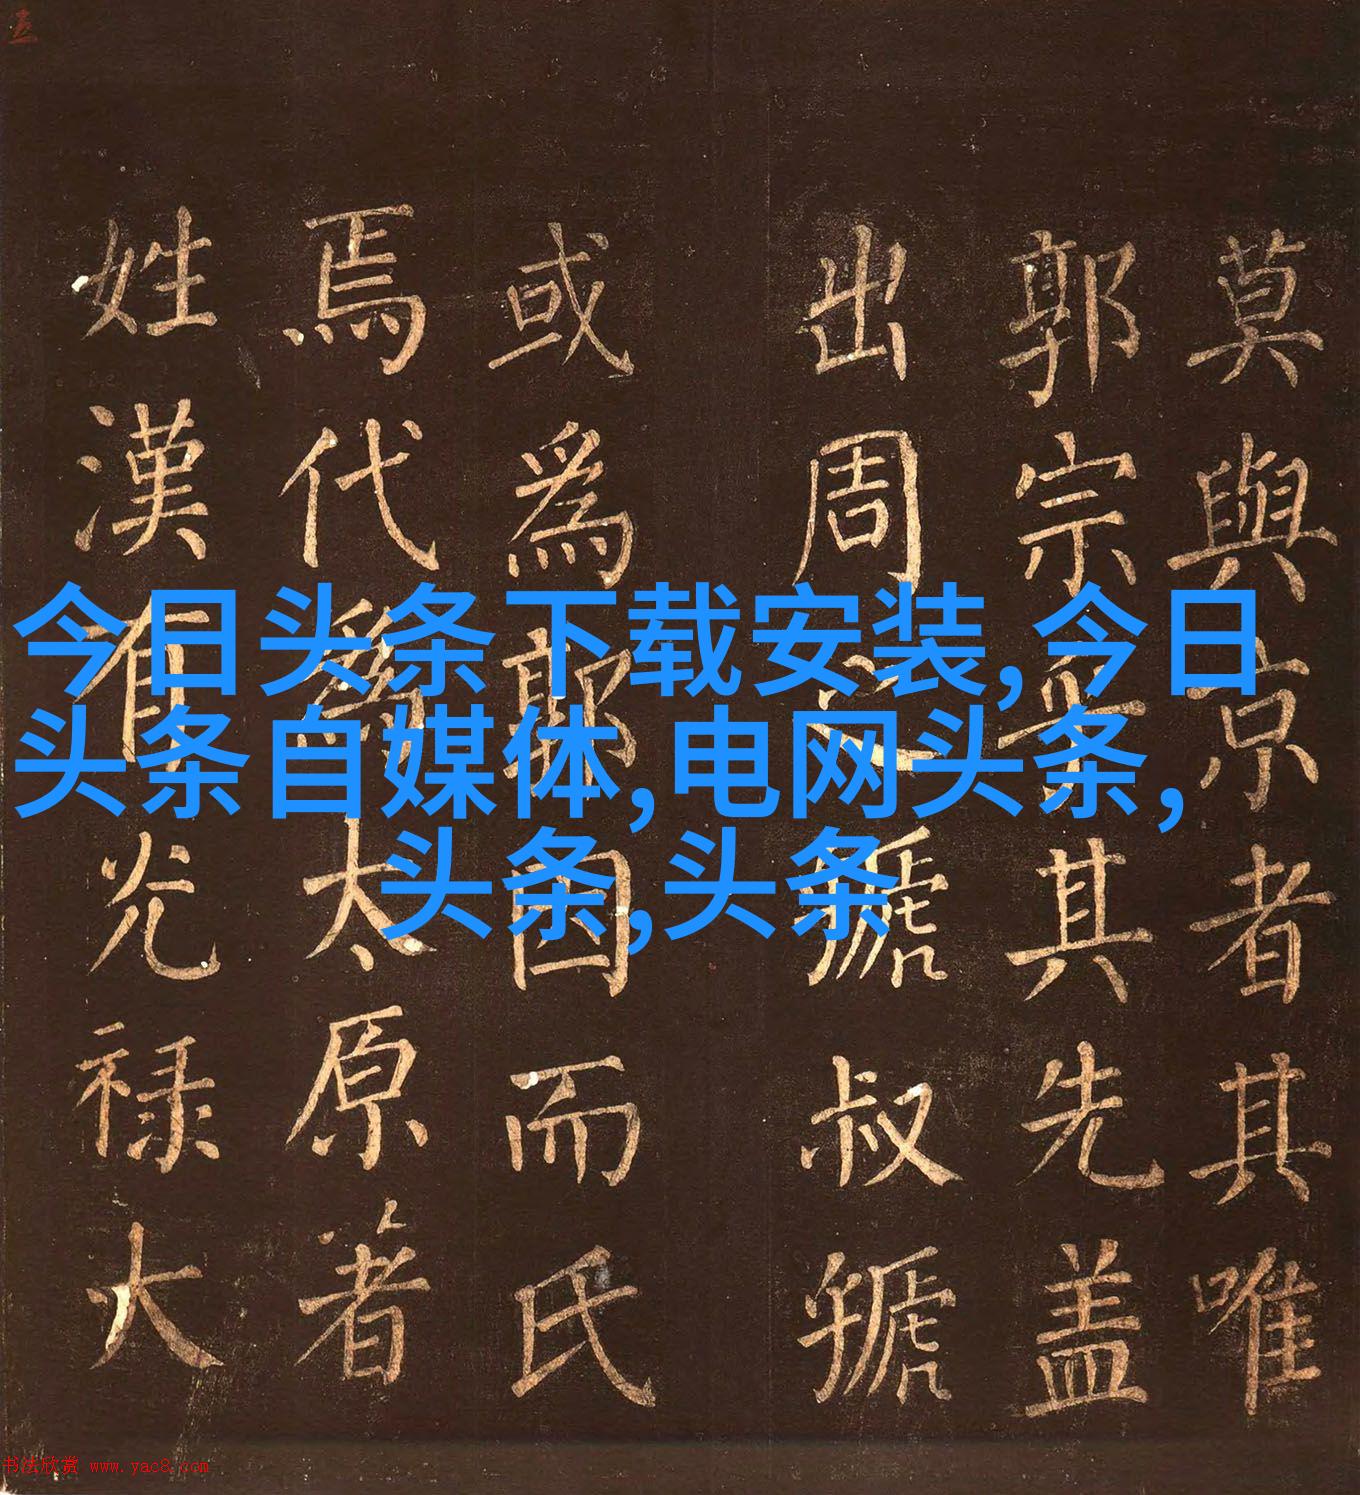 莫與京者其唯
郭宗乎其先盖
出周之虢叔虢
或為郭因而氏
焉代為太原著
姓漢有光禄大
今日头条下载安装,今日
头条自媒体,电网头条,
头条,头条
书法欣赏 www.yac8.com